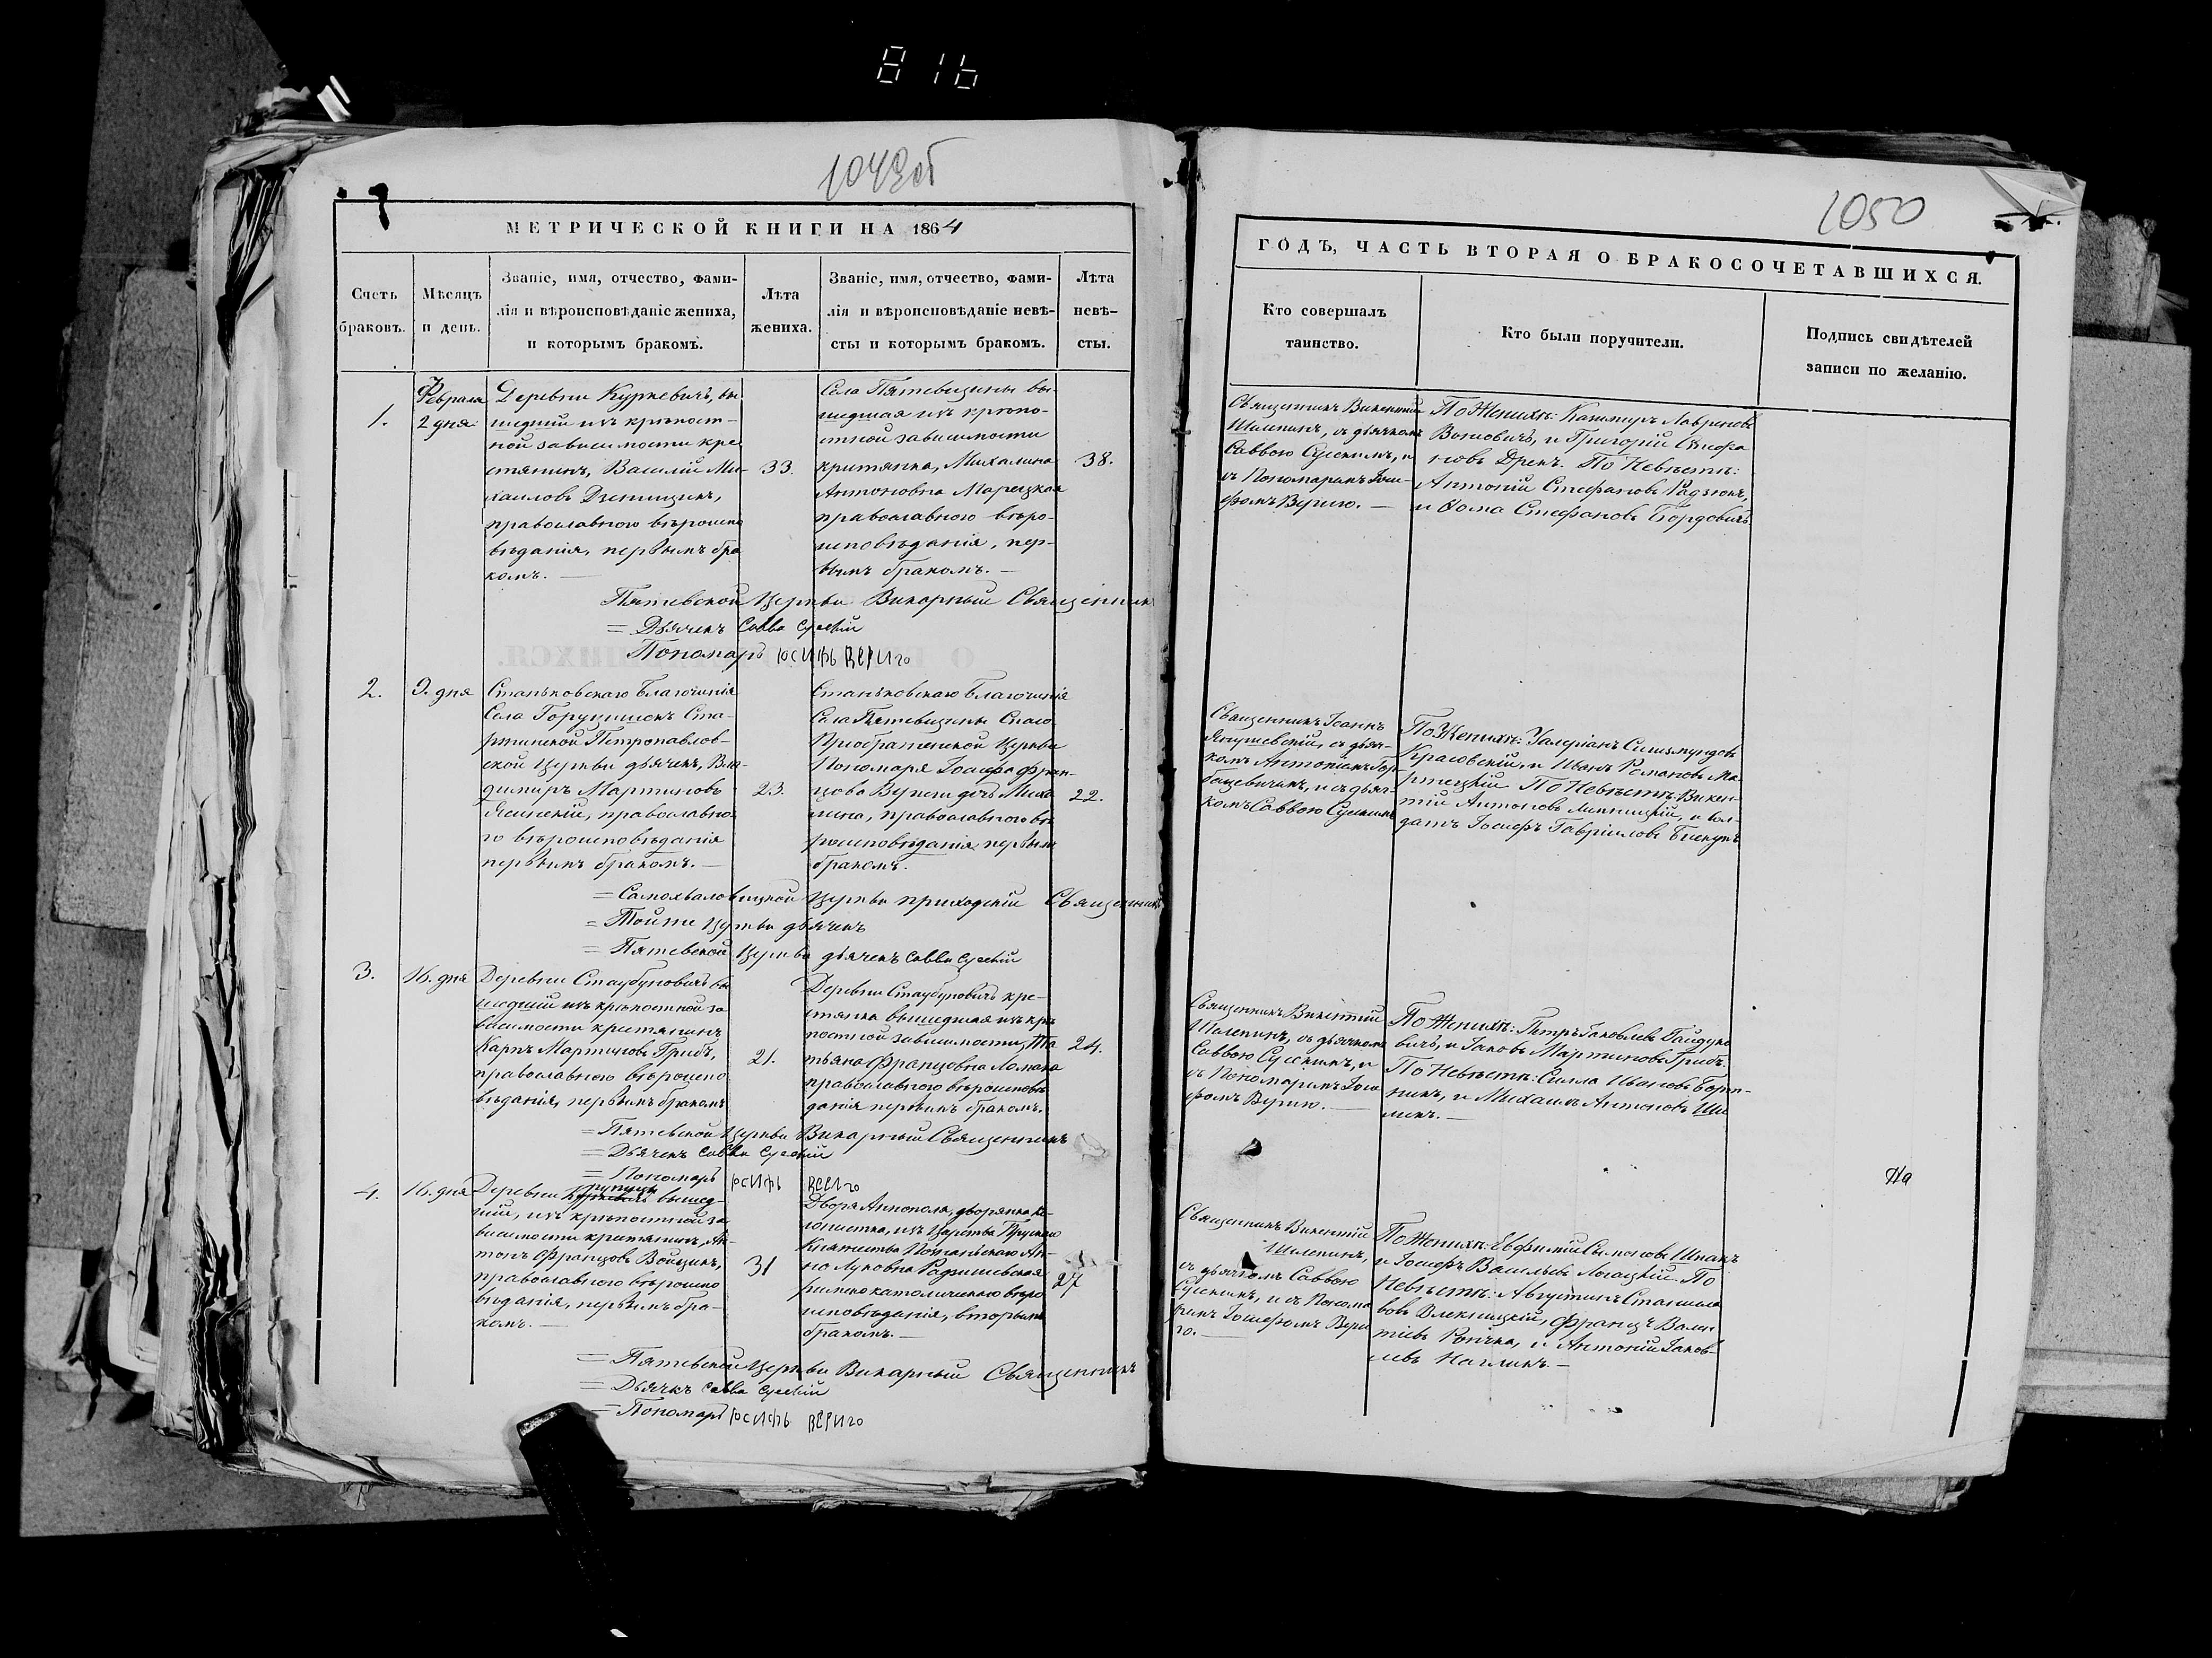 816
1049об
МЕТРИЧЕСКОЙ КНИГИ НА 1864
Счетъ
браковъ.
Мѣсяцъ
и день.
Званіе, имя, отчество, фами-
лія и вѣроисповѣданіе жениха,
и которымъ бракомъ.
Лѣта
жениха.
Званіе, имя, отчество, фами-
лія и вѣроисповѣданіе невѣ-
сты и которымъ бракомъ.
Лѣта
невѣ-
сты.
1.
Февраля
2 дня
Деревни Куркевичъ, вы
шедшій изъ крѣпост-
ной зависимости кре
стянинъ, Василій Ми-
хаиловъ
православнаго вѣроиспо
вѣданія, первымъ бра
комъ. —
33.
Села Пятевщины вы-
шедшая изъ крѣпо-
стной зависимости
критянка, Михалина
Антоновна Марецкая
православнаго вѣро-
исповѣданія, пер-
вымъ бракомъ. —
38.
Пятевской Церкви Викарный Священникъ
= Дьячекъ Савва Сусскій
Пономарь Іосифъ Вериго
2.
9. дня
Станьковскаго Благочинія
Села Горуцишекъ Ста-
ринской Петропавлов-
ской Церкви дьячекъ, Вла-
димиръ Мартиновъ
православна
го вѣроисповѣданія
первымъ бракомъ. —
23.
Станьковскаго Благочинія
Села Пятевщины Спасо
Преображенской Церкви
Пономаря Іосифа Фран-
цова Вериги дочь Миха
лина, православнаго вѣ
роисповѣданія первымъ
бракомъ.
22.
= Самохваловицкой Церкви приходскій Священникъ
= Тойже Церкви дьячекъ
= Пятевской Церкви дьячекъ Савва Сусскій
3.
16. дня
Деревни Стаубуновичъ вы
шедшій изъ крѣпостной за
висимости кретянинъ
Карпъ Мартиновъ Грибъ,
православнаго вѣроиспо
вѣданія, первымъ бракомъ
21.
Деревни Стаубуновичъ кре-
стянка вышедшая изъ крѣ
постной зависимости, Та
тьяна Францовна Ломака
православнаго вѣроисповѣ
данія первымъ бракомъ.
24.
= Пятевской Церкви Викарный Священникъ
= Дьячекъ Савва Сусскій
= Пономарь Іосифъ Вериго
4.
16. дня
Деревни вышед-
шій, изъ крѣпостной за
висимости кретянинъ, Ан-
тонъ Францовъ Войцикъ,
православнаго вѣроиспо
вѣданія, первымъ бра-
комъ. —
31
Двора Аннополя, дворянка ко-
лонистка, изъ Царства Прускаго
Княжества Познаньскаго Ан-
на Луковна
римско католическаго вѣро
исповѣданія, вторымъ
бракомъ. —
27
= Пятевской Церкви Викарный Священникъ
= Дьячекъ Савва Сусскій
= Пономарь Іосифъ Вериго
1050
ГОДЪ, ЧАСТЬ ВТОРАЯ О БРАКОСОЧЕТАВШИХСЯ.
Кто совершалъ
таинство.
Кто были поручители.
Подпись свидѣтелей
записи по желанію.
Священникъ Викентій
Шалепинъ, съ дьячкомъ
Саввою Сусскимъ, и
съ Пономаремъ Іоси-
фомъ Вериго. —
По Женихѣ: Казимиръ Лавреновъ
и Григорій Стефа
новъ Дрекъ. По Невѣстѣ:
Антоній Стефановъ Радзюкъ,
и Ѳома Стефановъ Бордовичъ
Священникъ Іоаннъ
Янушевскій, съ дьяч-
комъ Антоніемъ Гор-
бацевичемъ, и съ дьяч-
комъ Саввою Сусскимъ
По Женихѣ: Валеріанъ Сигизмундовъ
Красовскій, и Иванъ Романовъ Ма-
По Невѣстѣ: Викен-
тій Антоновъ и сол-
датъ Іосифъ Гавріиловъ
Священникъ Викентій
Шалепинъ, съ дьячкомъ
Саввою Сусскимъ, и
съ Пономаремъ Іоси
фомъ Вериго. —
По Женихѣ: Петръ Іаковлевъ Гайдуко
вичъ, и Іаковъ Мартиновъ Грибъ.
По Невѣстѣ: Силла Ивановъ Борт-
никъ, и Михаилъ Антоновъ
Священникъ Викентій
Шалепинъ,
съ дьячкомъ Саввою
Сусскимъ, и съ Понома
ремъ Іосифомъ Вери
го. —
По Женихѣ: Евфимій Сымоновъ Шпакъ
и Іосифъ Васильевъ Логацкій. По
Невѣстѣ: Августинъ Станисла
вовъ Францъ Вален
тіевъ и Антоній Іаков-
левъ
На